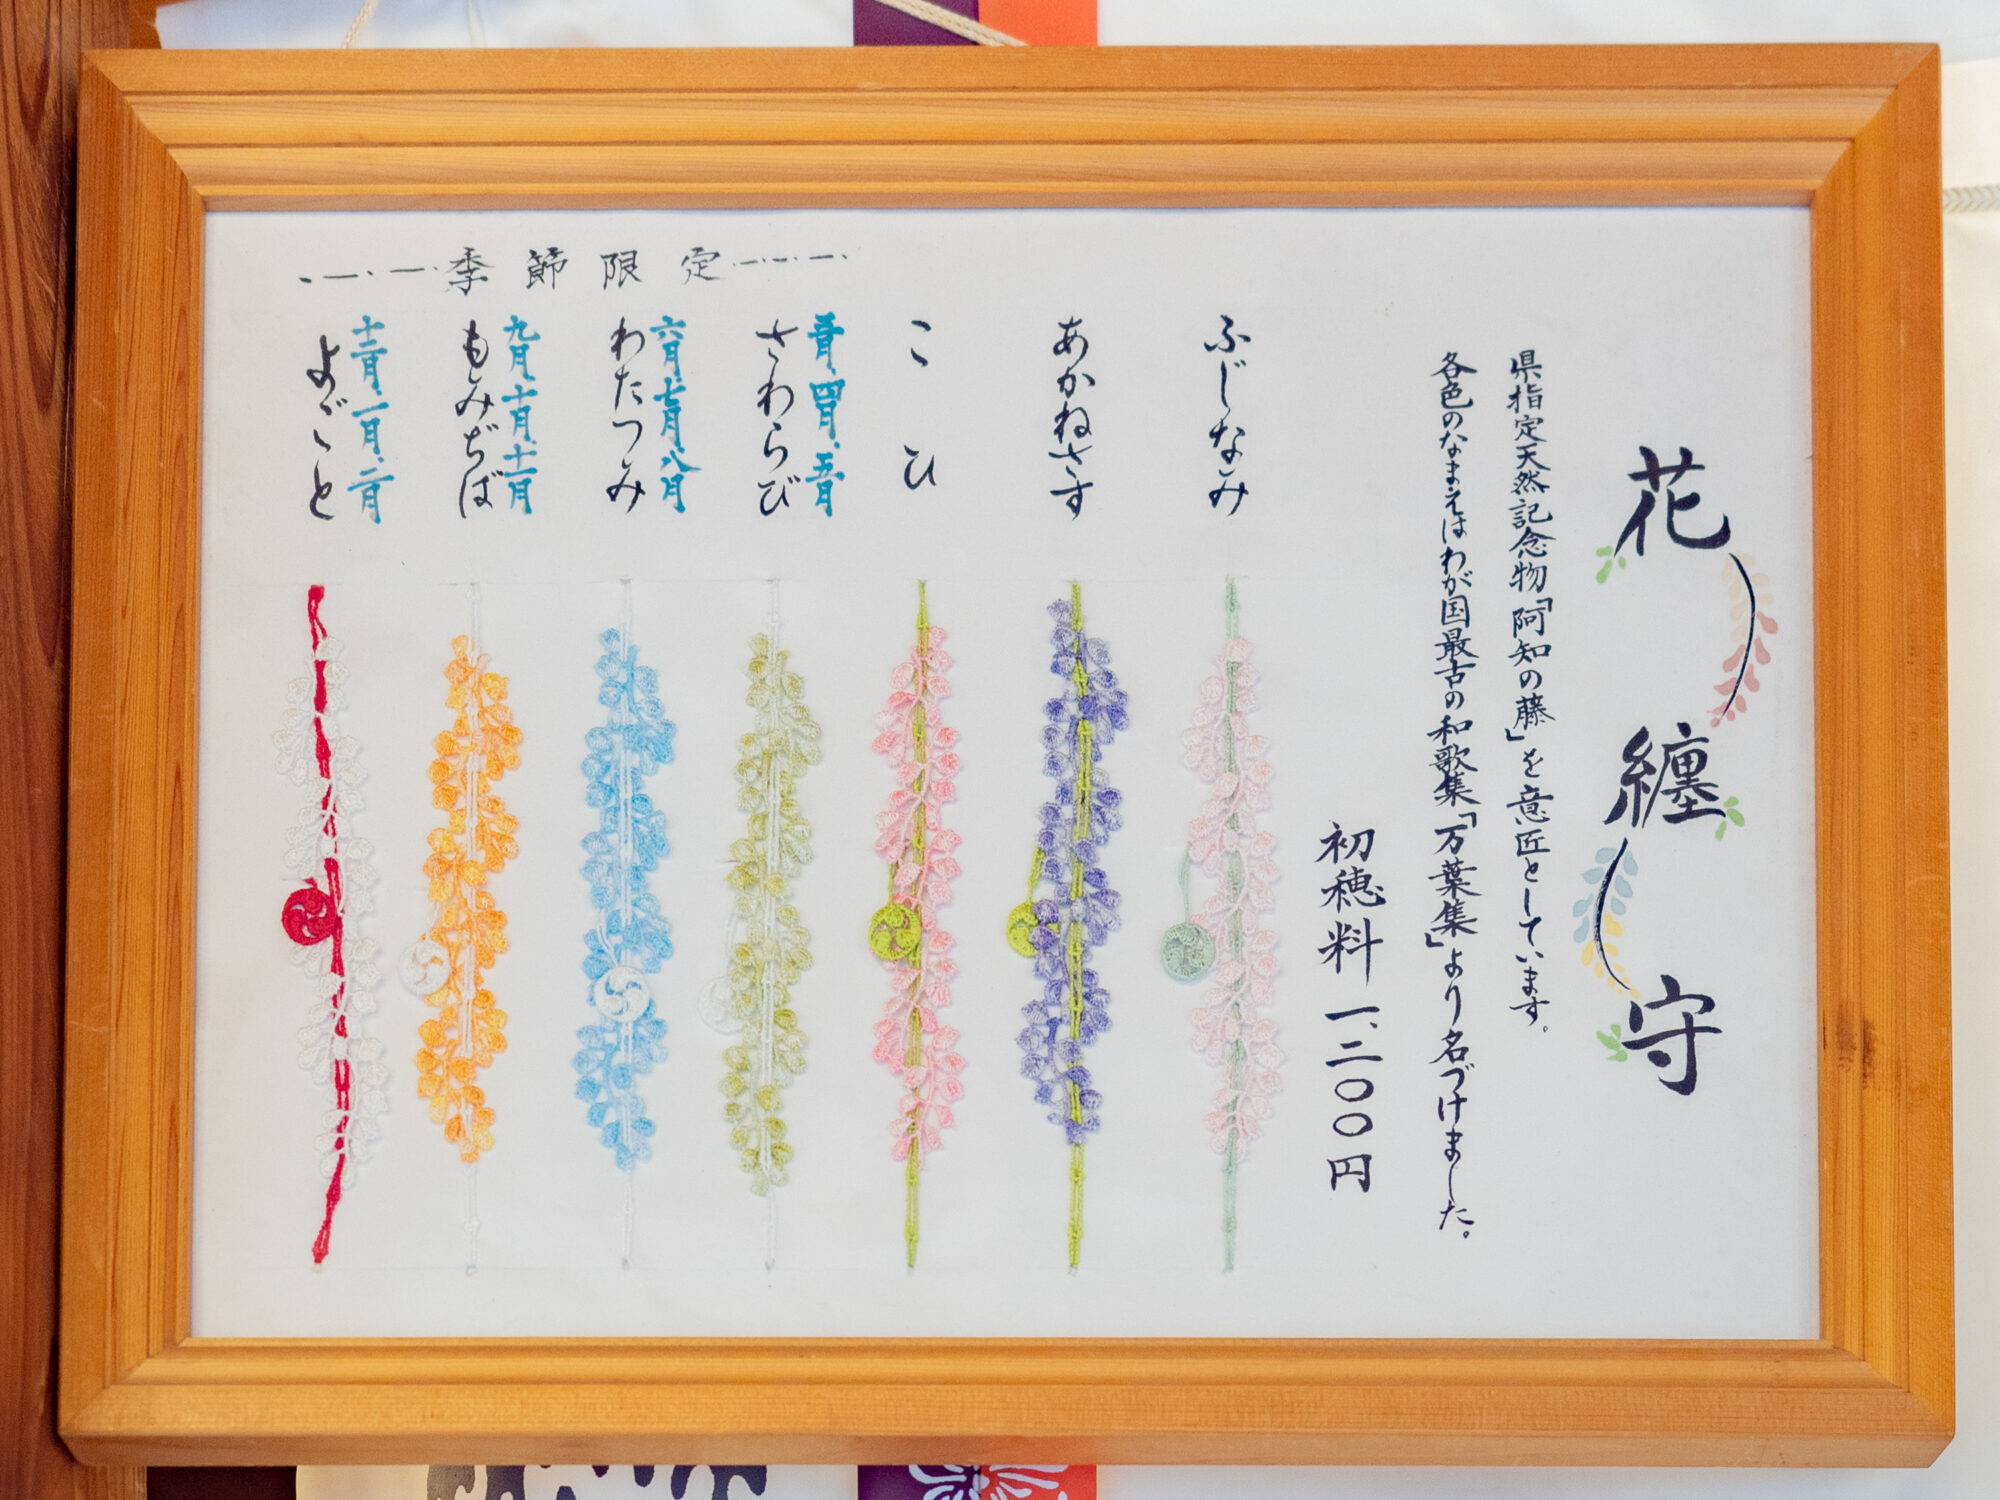 花纏守
県指定天然記念物「阿知の藤」を意匠としています。
各色のなまえはわが国最古の和歌集「万葉集」より名づけました。
初穂料 一、二〇〇円
ふじなみ
あかねさす
こひ
季節限定
三月、四月、五月
さわらび
六月、七月、八月
わたつみ
九月、十月、十一月
もみぢば
十二月、一月、二月
よごと